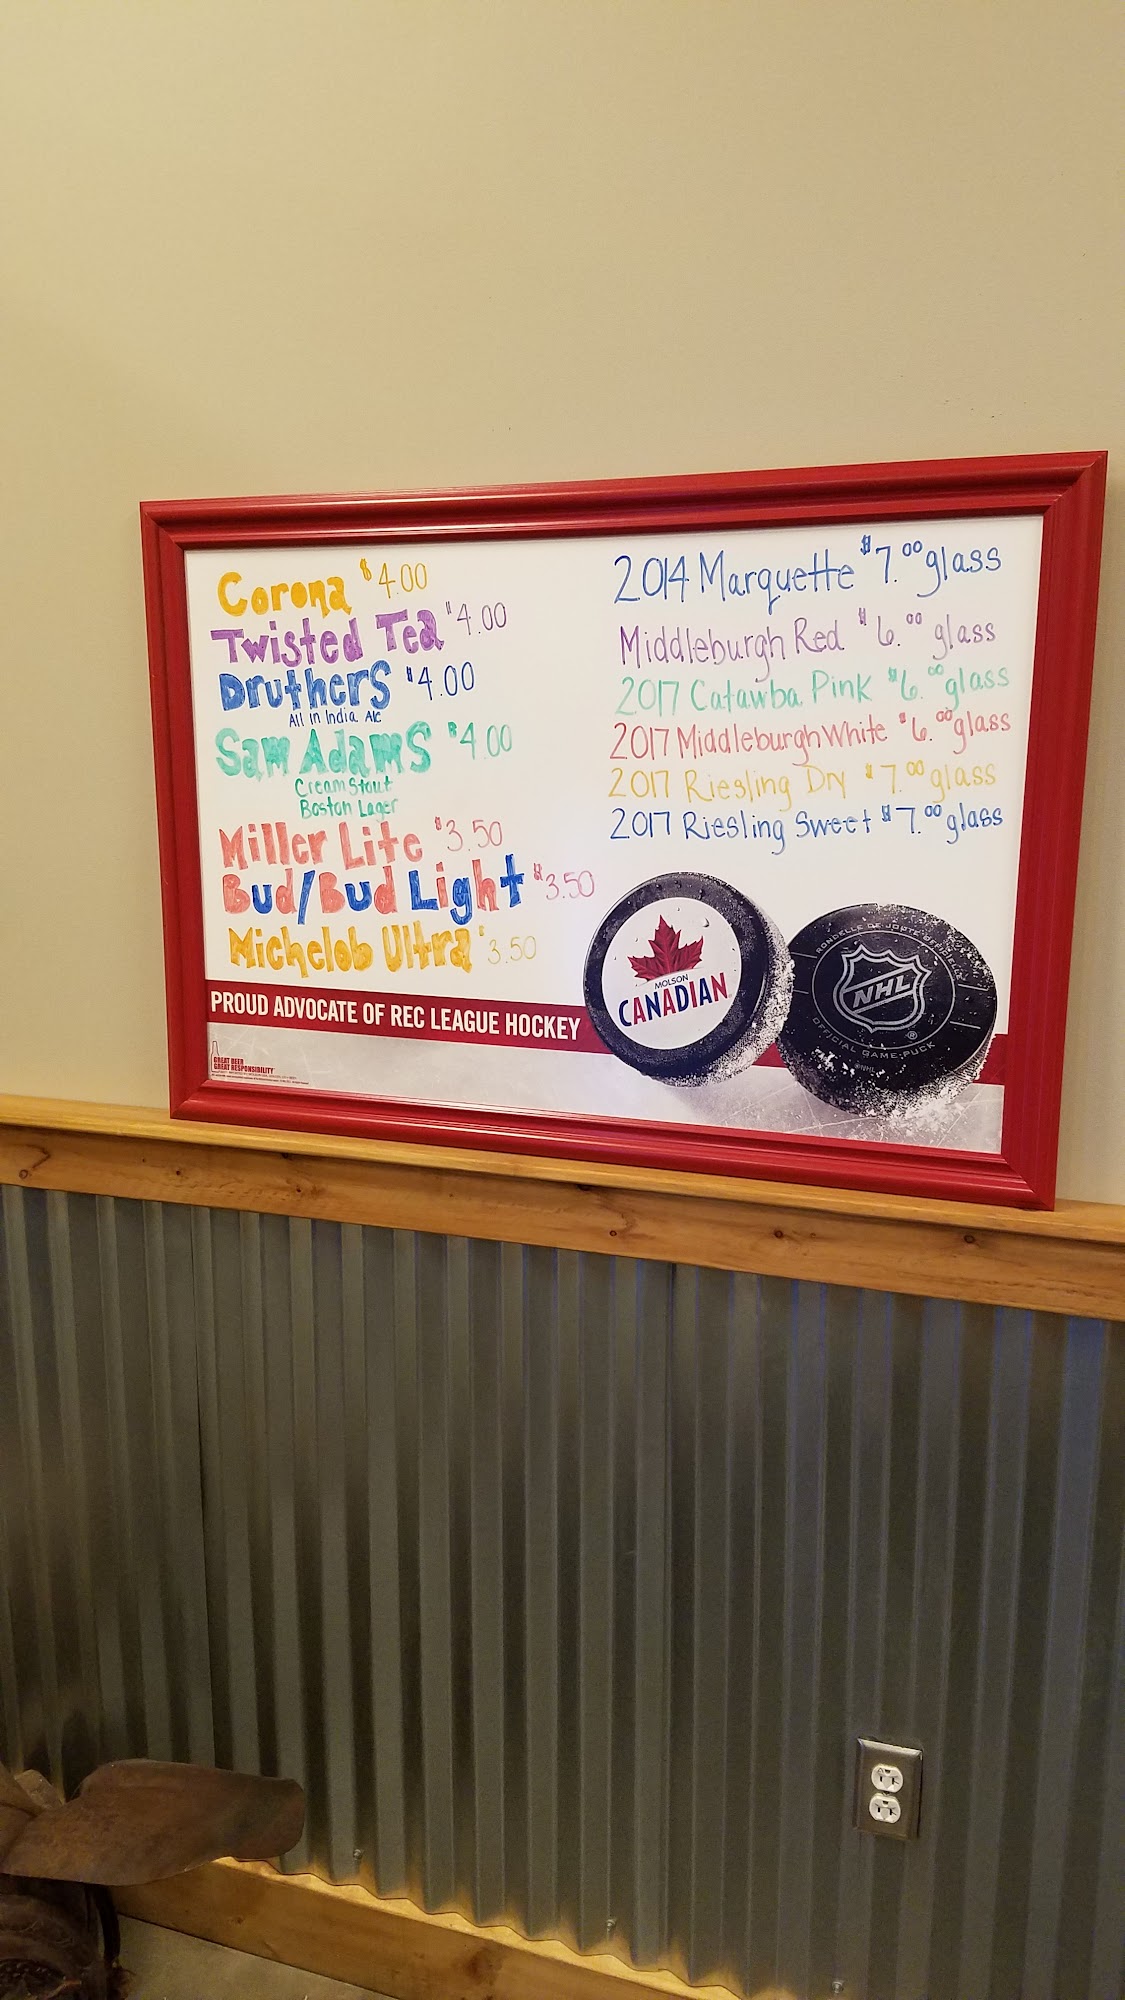 Corona $4.00
Twisted Tea $4.00
Druthers $4.00
All in India Ale
Sam Adams $4.00
Cream Stout
Boston Lager
Miller Lite $3.50
Bud/Bud Light $3.50
Michelob Ultra $3.50
2014 Marquette $7.00 glass
Middleburgh Red $6.00 glass
2017 Catawba Pink $6.00 glass
2017 Middleburgh White $6.00 glass
2017 Riesling Dry $7.00 glass
2017 Riesling Sweet $7.00 glass
PROUD ADVOCATE OF REC LEAGUE HOCKEY
MOLSON
CANADIAN
RONDELLE DE JOUTE OFFICIELLE
NHL
®
OFFICIAL GAME PUCK
GREAT BEER
GREAT RESPONSIBILITY